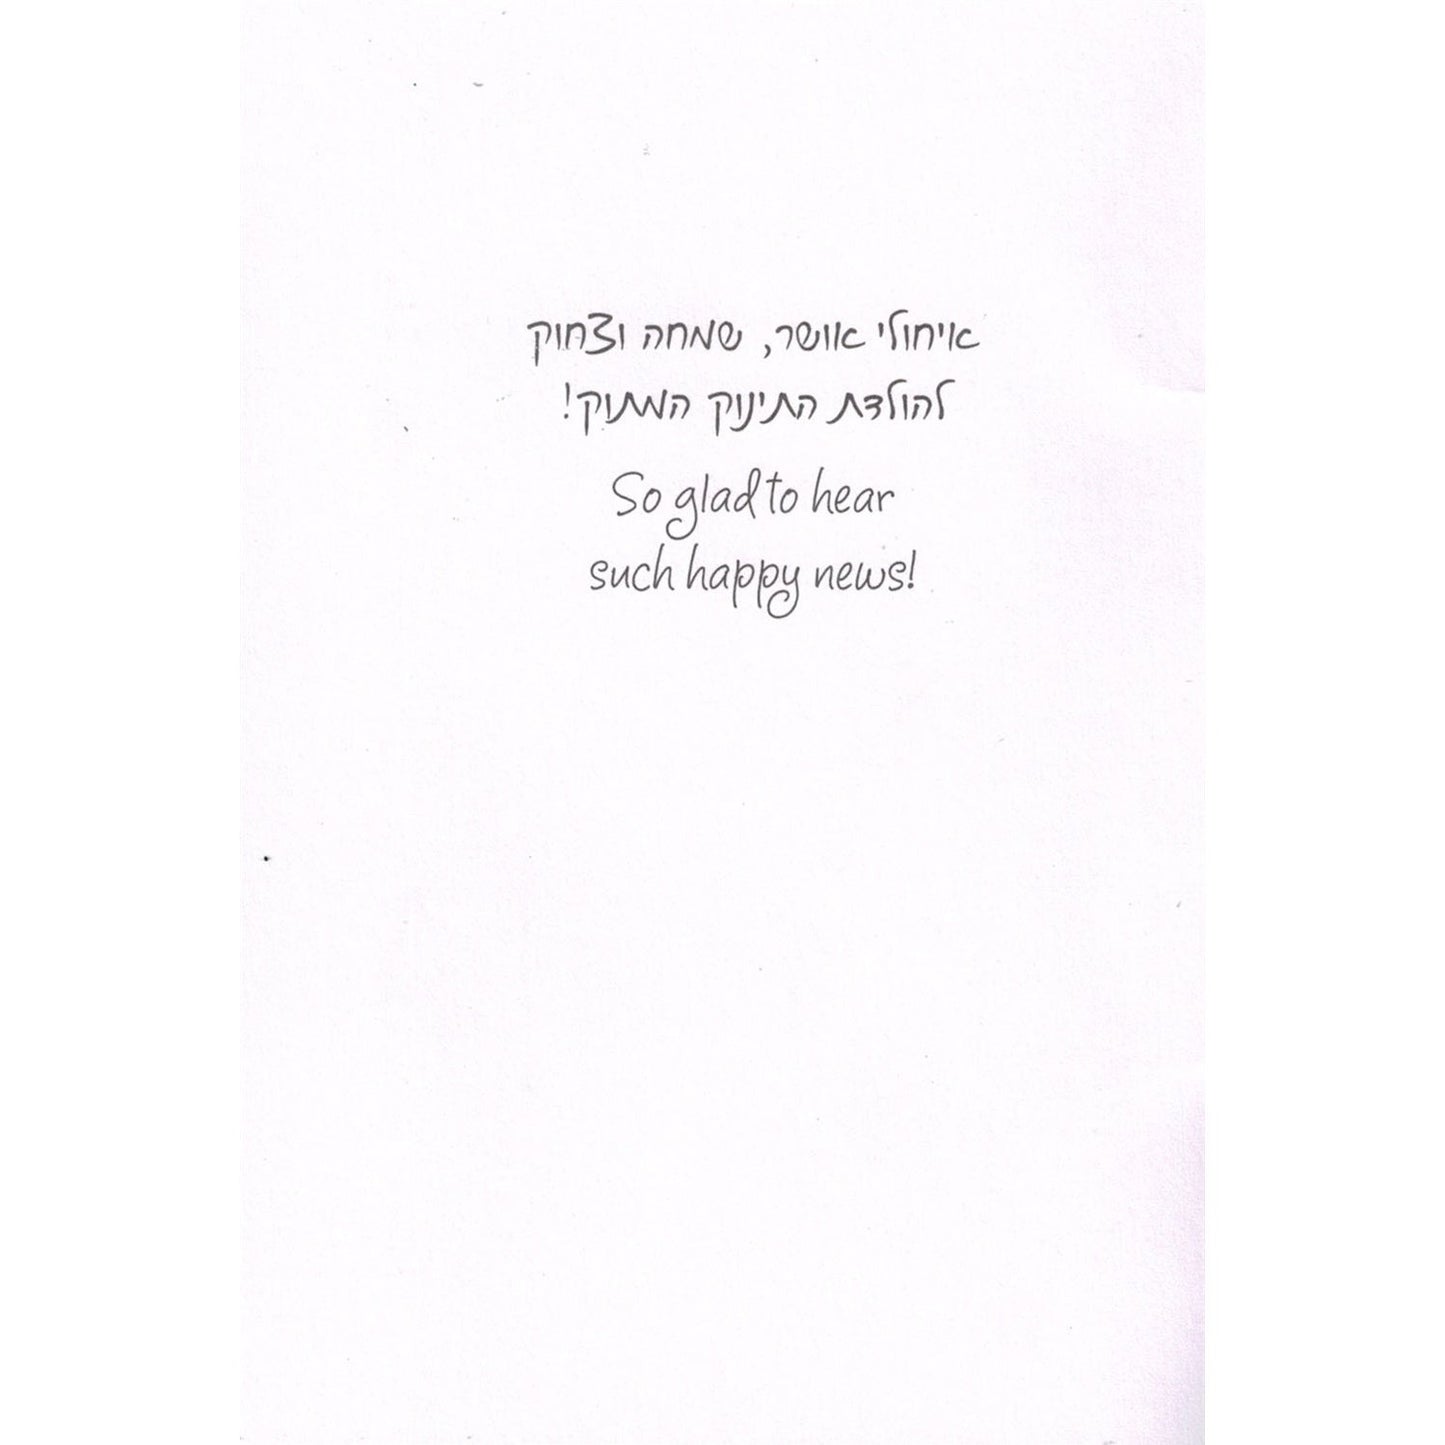 איחולי אושר, שמחה וצחוק
להולדת התינוק המתוק!
So glad to hear
such happy news!